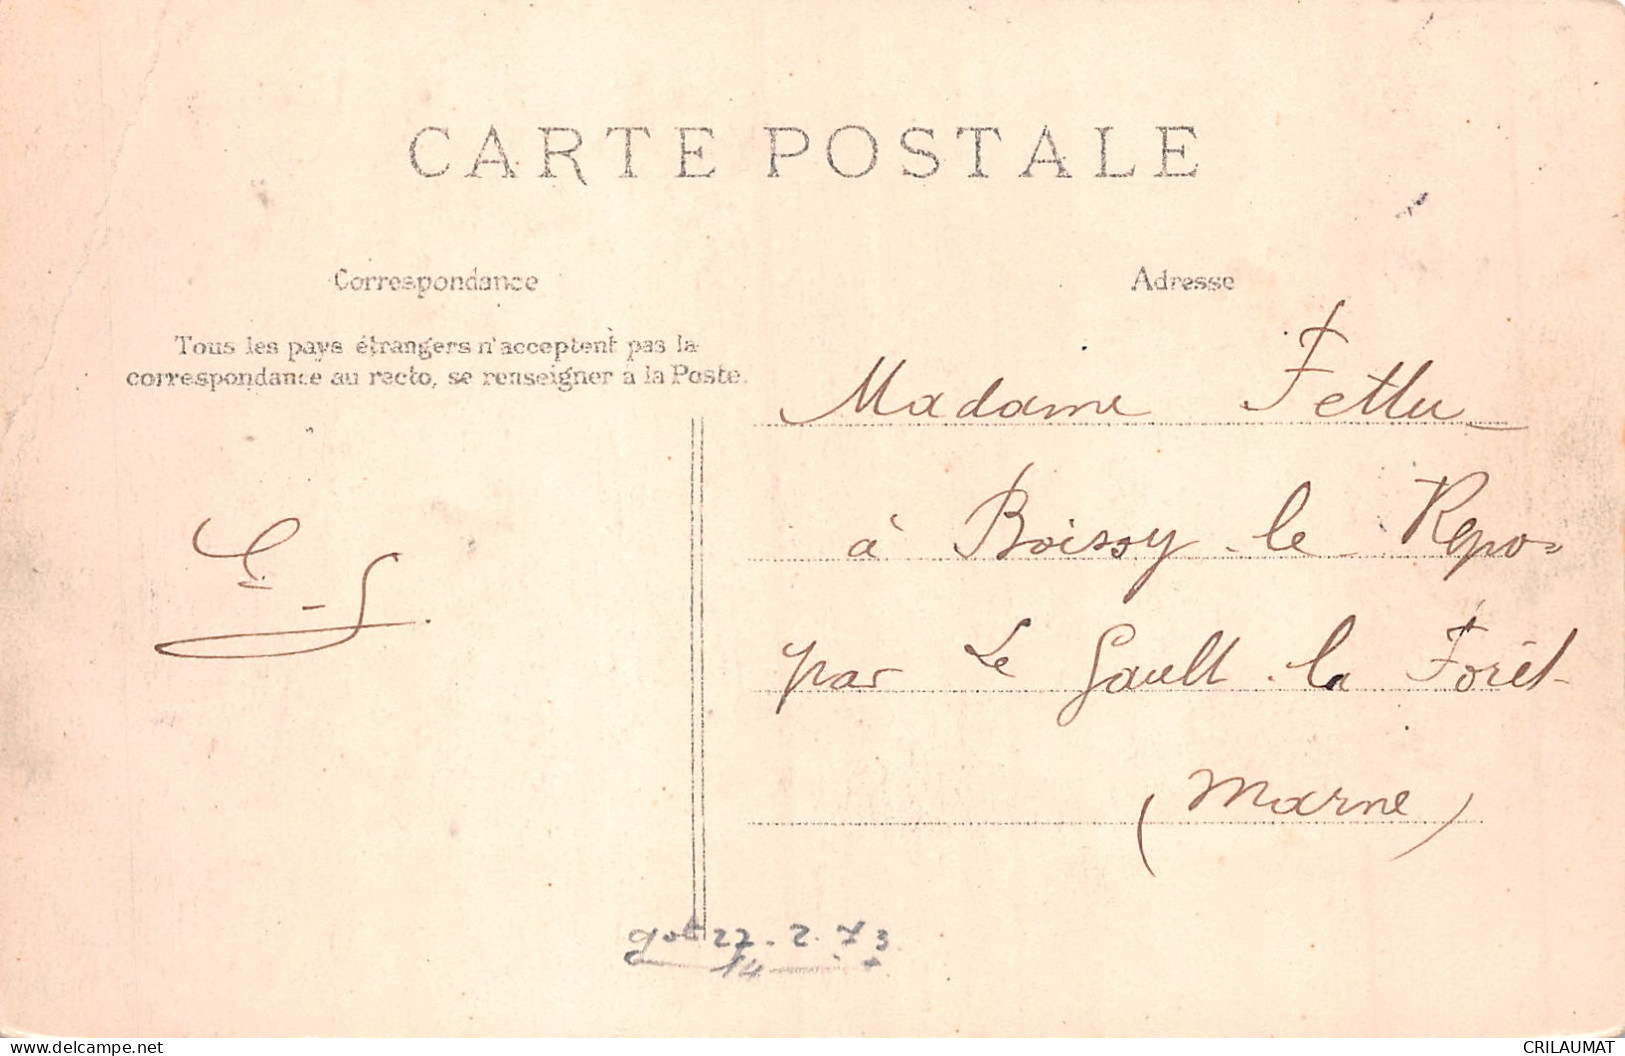 CARTE POSTALE
Correspondance
Tous les pays étrangers n'acceptent pas la
correspondance au recto, se renseigner à la Poste.
Adresse
Madame Fettu
à Boissy-le-Repos
par Le Gault-la-Forêt
(Marne)
27-2.73
14
www.delcampe.net
CRILAUMAT